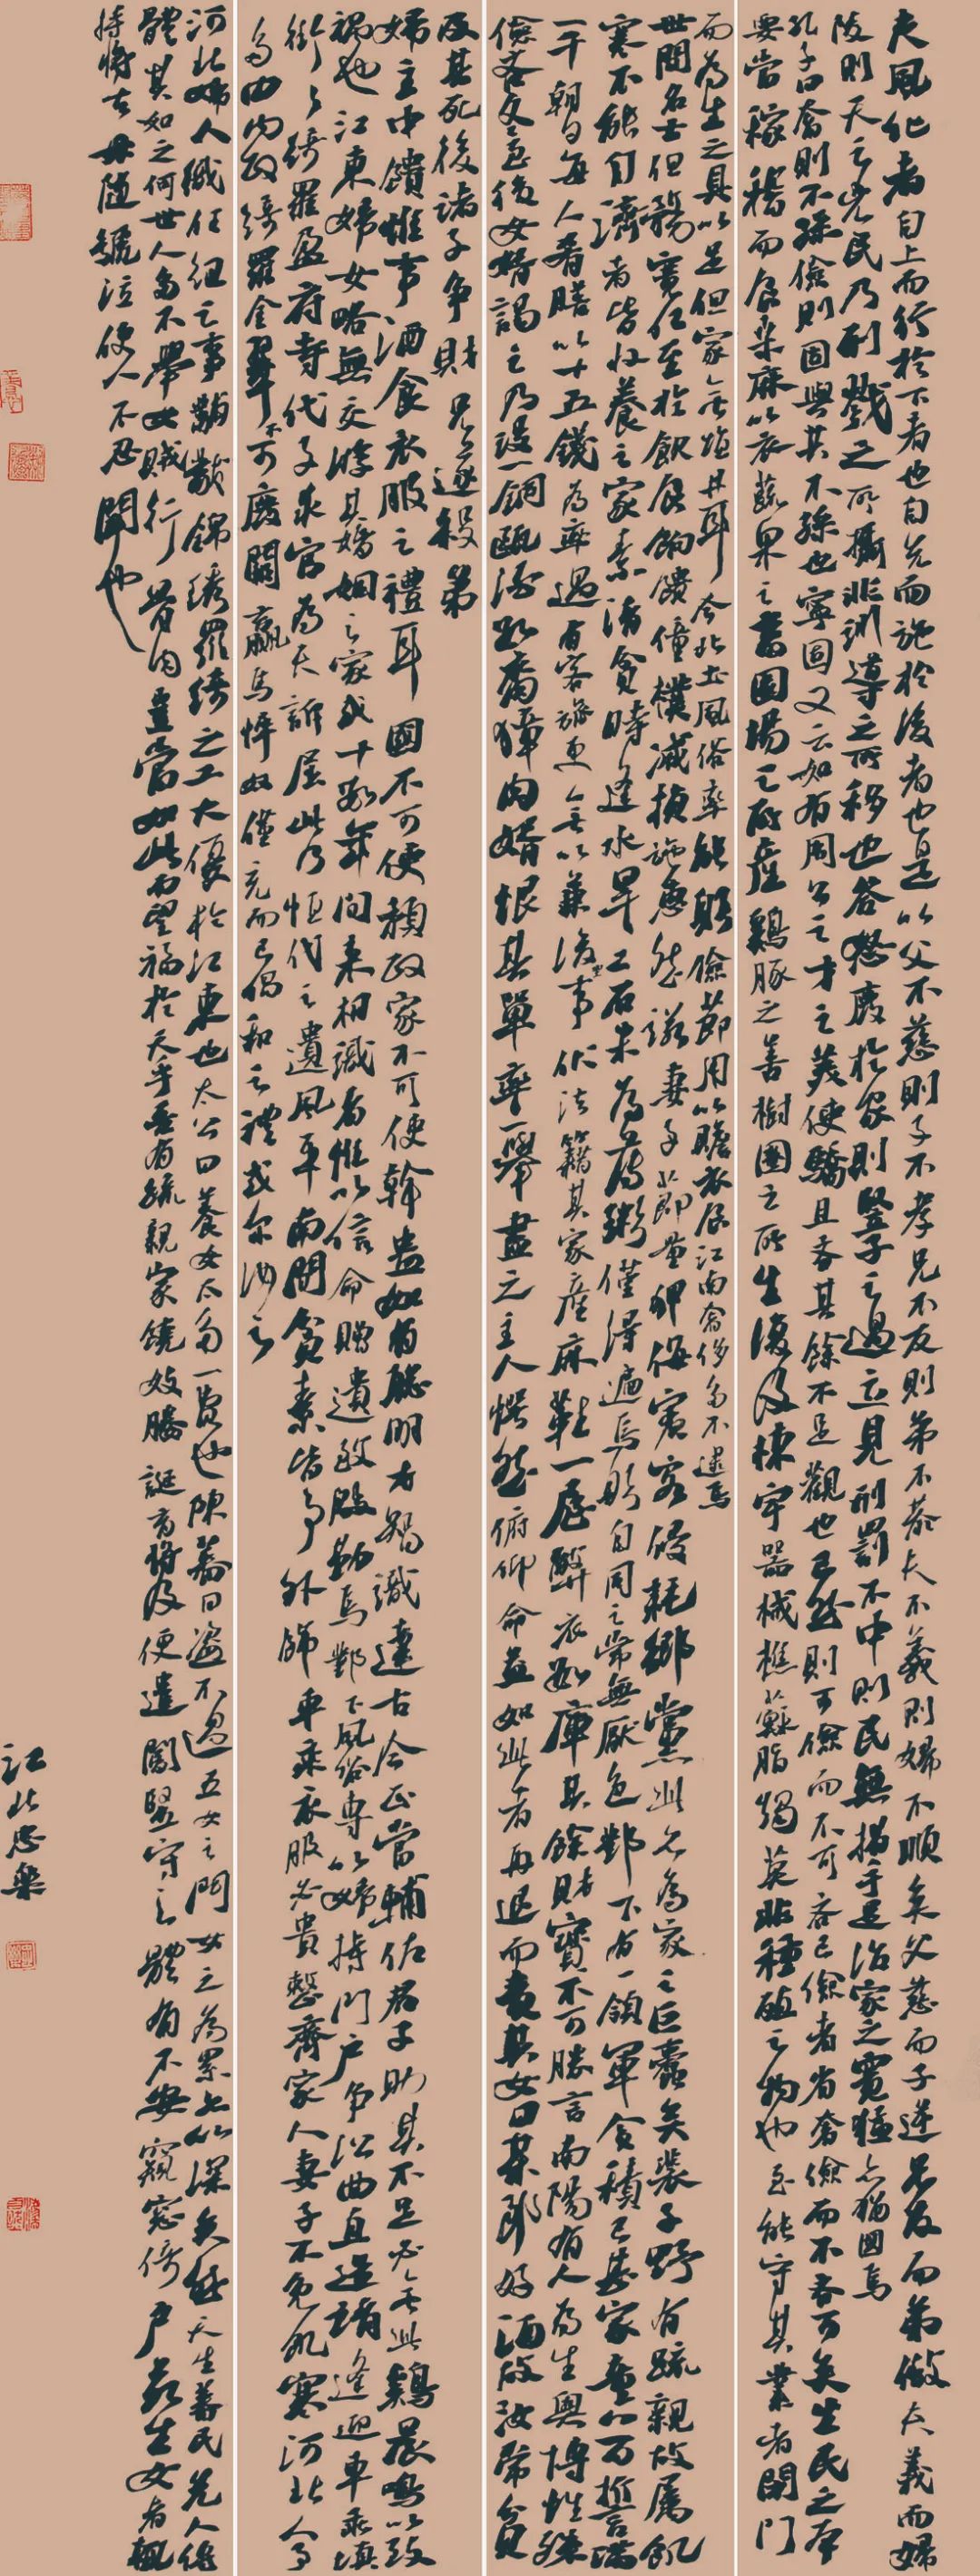 夫風化者自上而行於下者也自先而施於後者也是以父不慈則子不孝兄不友則弟不恭夫不義則婦不順矣父慈而子逆兄友而弟傲夫義而婦
陵則天之凶民乃刑戮之所攝非訓導之所移也笞怒廢於家則豎子之過立見刑罰不中則民無措手足治家之寬猛亦猶國焉
孔子曰奢則不孫儉則固與其不孫也寧固又云如有周公之才之美使驕且吝其餘不足觀也已然則可儉而不可吝已儉者省奢儉而不吝可矣生民之本
要當稼穡而食桑麻以衣蔬果之畜園場之所產鷄豚之善樹圈之所生復及棟宇器械樵蘇脂燭莫非種殖之物也至能守其業者閉門
而為生之具以足但家無鹽井耳今北土風俗率能躬儉節用以贍衣食江南奢侈多不逮焉
世間名士但務寬仁至於飲食餉饋僮僕減損施惠然諾妻子節量狎侮賓客侵耗鄉黨此亦為家之巨蠹矣裴子野有疏親故屬飢
寒不能自濟者皆收養之家素清貧時逢水旱二石米為薄粥僅得遍焉躬自同之常無厭色鄴下有一領軍貪積已甚家童八百誓滿
一千朝夕每人肴膳以十五錢為率遇有客旅更無以兼後事伏法籍其家產麻鞋一屋弊衣數庫其餘財寶不可勝言南陽有人為生奧博性殊
儉吝冬至後女婿謁之乃設一銅甌酒數臠獐肉婿恨其單率一舉盡之主人愕然俯仰命益如此者再退而責其女曰某郎好酒故汝常貧
及其死後諸子爭財兄遂殺弟
婦主中饋惟事酒食衣服之禮耳國不可使預政家不可使幹蠱如有聰明才智識達古今正當輔佐君子助其不足必無此鷄晨鳴以致
禍也江東婦女略無交游其婚姻之家或十數年間未相識者惟以信命贈遺致殷勤焉鄴下風俗專以婦持門戶爭訟曲直造請逢迎車乘填
街衢綺羅盈府寺代子求官為夫訴屈此乃恒代之遺風乎南間貧素皆事外飾車乘衣服必貴整齊家人妻子不免飢寒河北人事
多由內政綺羅金翠不可廢闕羸馬悴奴僅充而已倡和之禮或爾汝之
河北婦人織紝組之事黼黻錦繡羅綺之工大優於江東也太公曰養女太多一費也陳蕃曰盜不過五女之門女之為累亦以深矣然天生蒸民先人傳
體其如之何世人多不舉女賊行骨肉豈當如此而望福於天乎吾有疏親家饒妓媵誕育將及便遣閽豎守之體有不安窺窗倚戶若生女者輒
持將去母隨號泣使人不忍聞也